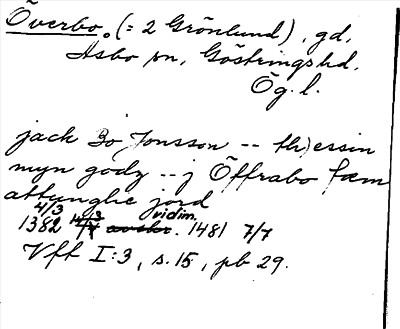 Överbo. (= 2 Grönlund), gd,
Asbo sn, Göstrings hd,
Ög. l.
jack Bo Jonsson -- th)essin
myn godz -- j Öffrabo fæm
attunghe jord
1382 4/3 vidim. 1481 7/7
Vff I:3, s. 15, pb 29.